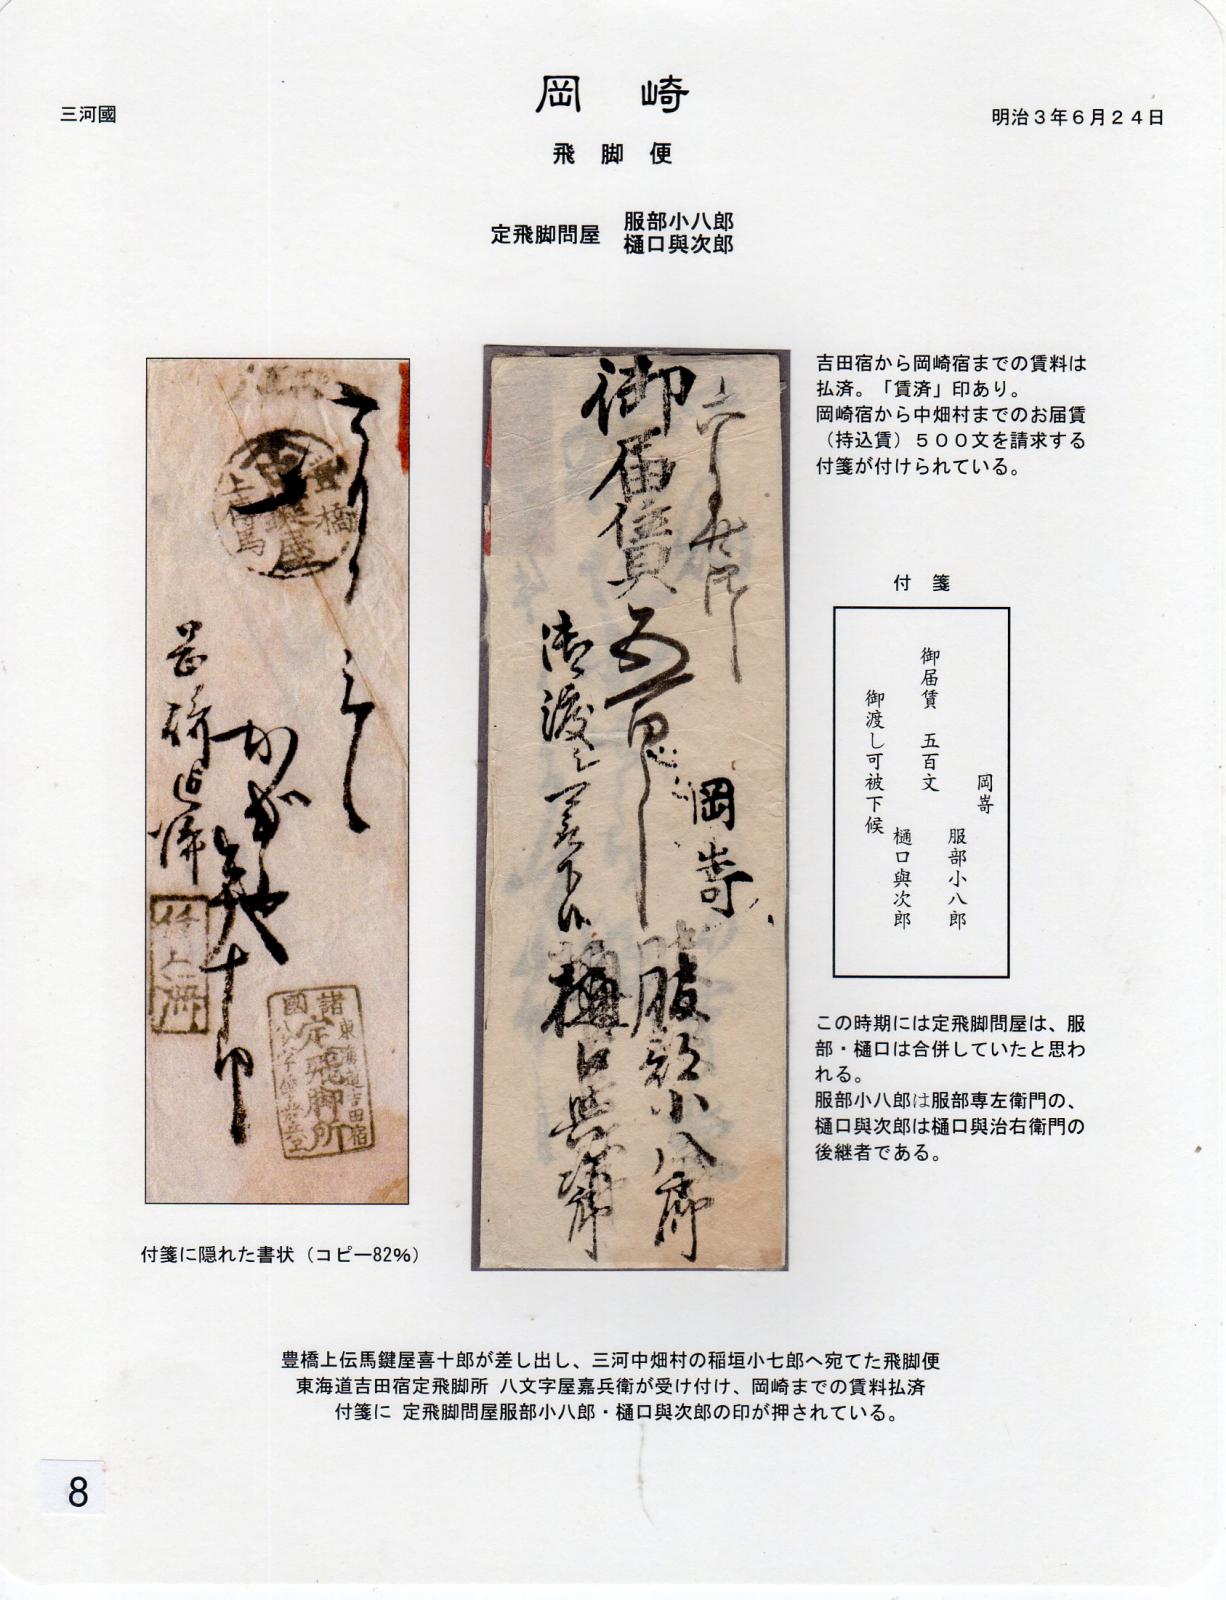 三河國
岡崎
明治３年６月２４日
飛脚便
定飛脚問屋
服部小八郎
樋口與次郎
吉田宿から岡崎宿までの賃料は
払済。「賃済」印あり。
岡崎宿から中畑村までのお届賃
（持込賃）５００文を請求する
付箋が付けられている。
付箋
岡嵜
服部小八郎
御届賃 五百文
樋口與次郎
御渡し可被下候
この時期には定飛脚問屋は、服
部・樋口は合併していたと思わ
れる。
服部小八郎は服部専左衛門の、
樋口與次郎は樋口與治右衛門の
後継者である。
豊橋
鍵屋
上傳馬
かぎや
喜十郎
諸國
定飛脚所
東海道吉田宿
岡嵜
御届賃 五百文
服部小八郎
御渡し可被下候
樋口與次郎
付箋に隠れた書状（コピー82%）
豊橋上伝馬鍵屋喜十郎が差し出し、三河中畑村の稲垣小七郎へ宛てた飛脚便
東海道吉田宿定飛脚所 八文字屋嘉兵衛が受け付け、岡崎までの賃料払済
付箋に 定飛脚問屋服部小八郎・樋口與次郎の印が押されている。
8